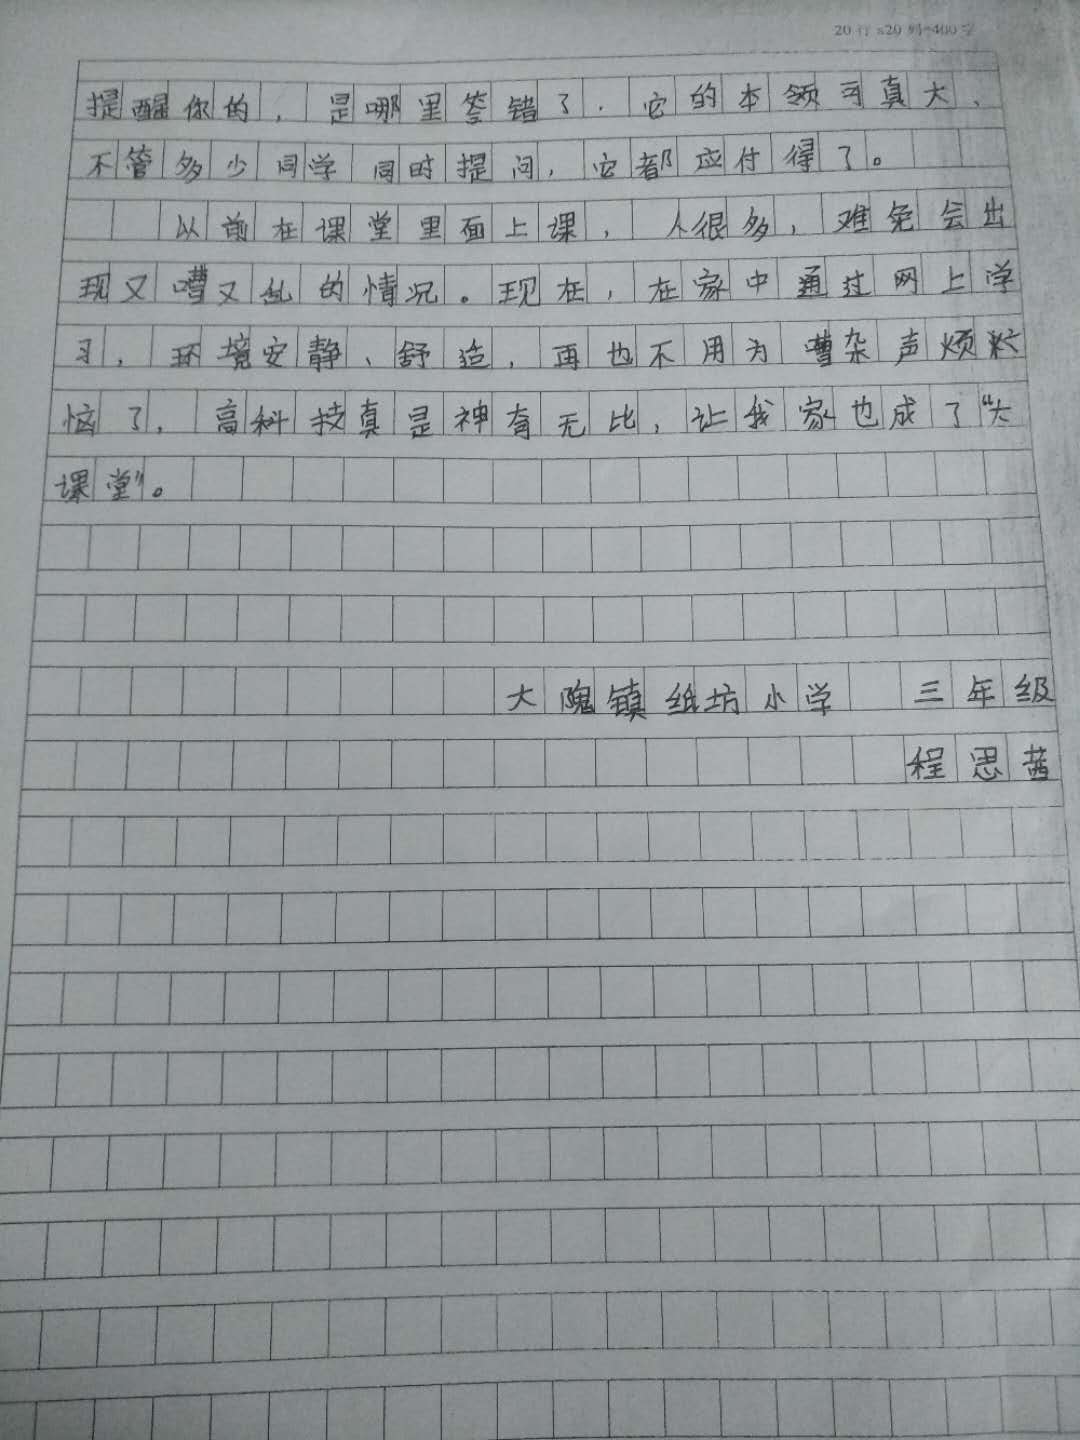 20行x20列=400字
提醒你的，是哪里答错了．它的本领可真大、
不管多少同学同时提问，它都应付得了。
以前在课堂里面上课，人很多，难免会出
现又嘈又乱的情况。现在，在家中通过网上学
习，环境安静、舒适，再也不用为嘈杂声烦忙
恼了，高科技真是神奇无比，让我家也成了“大
课堂”。
大隗镇纸坊小学 三年级
程思茜